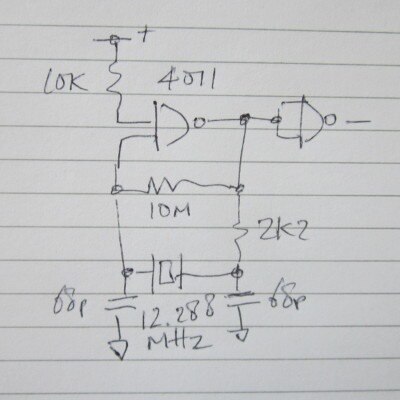 +
10K
4011
10M
2K2
68p
12.288
MHz
68p